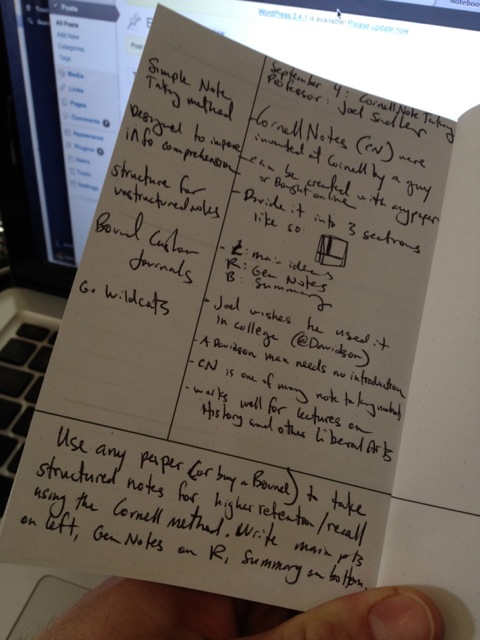 WordPress 3.4.1 is available! Please update now
Notebo
Posts
All Posts
Add New
Categories
Tags
Media
Links
Pages
Comments
Appearance
Plugins
Users
Tools
Settings
Simple Note
Taking method
Designed to improve
info comprehension
structure for
unstructured notes
Bound Custom
Journals
Go Wildcats
September 4: Cornell Note Taking
Professor: Joel
- Cornell Notes (CN) were
invented at Cornell by a guy
- can be created with any paper
or Bought online
- Divide it into 3 sections
like so:
- L: main ideas
R: Gen Notes
B: Summary
- Joel wishes he used it
in college (@Davidson)
- A Davidson man needs no introduction
- CN is one of many note taking methods
- works well for lectures on
History and other Liberal Arts
Use any paper (or buy a Bound) to take
structured notes for higher retention/recall
using the Cornell method. Write main pts
on left, Gen Notes on R, Summary on bottom.